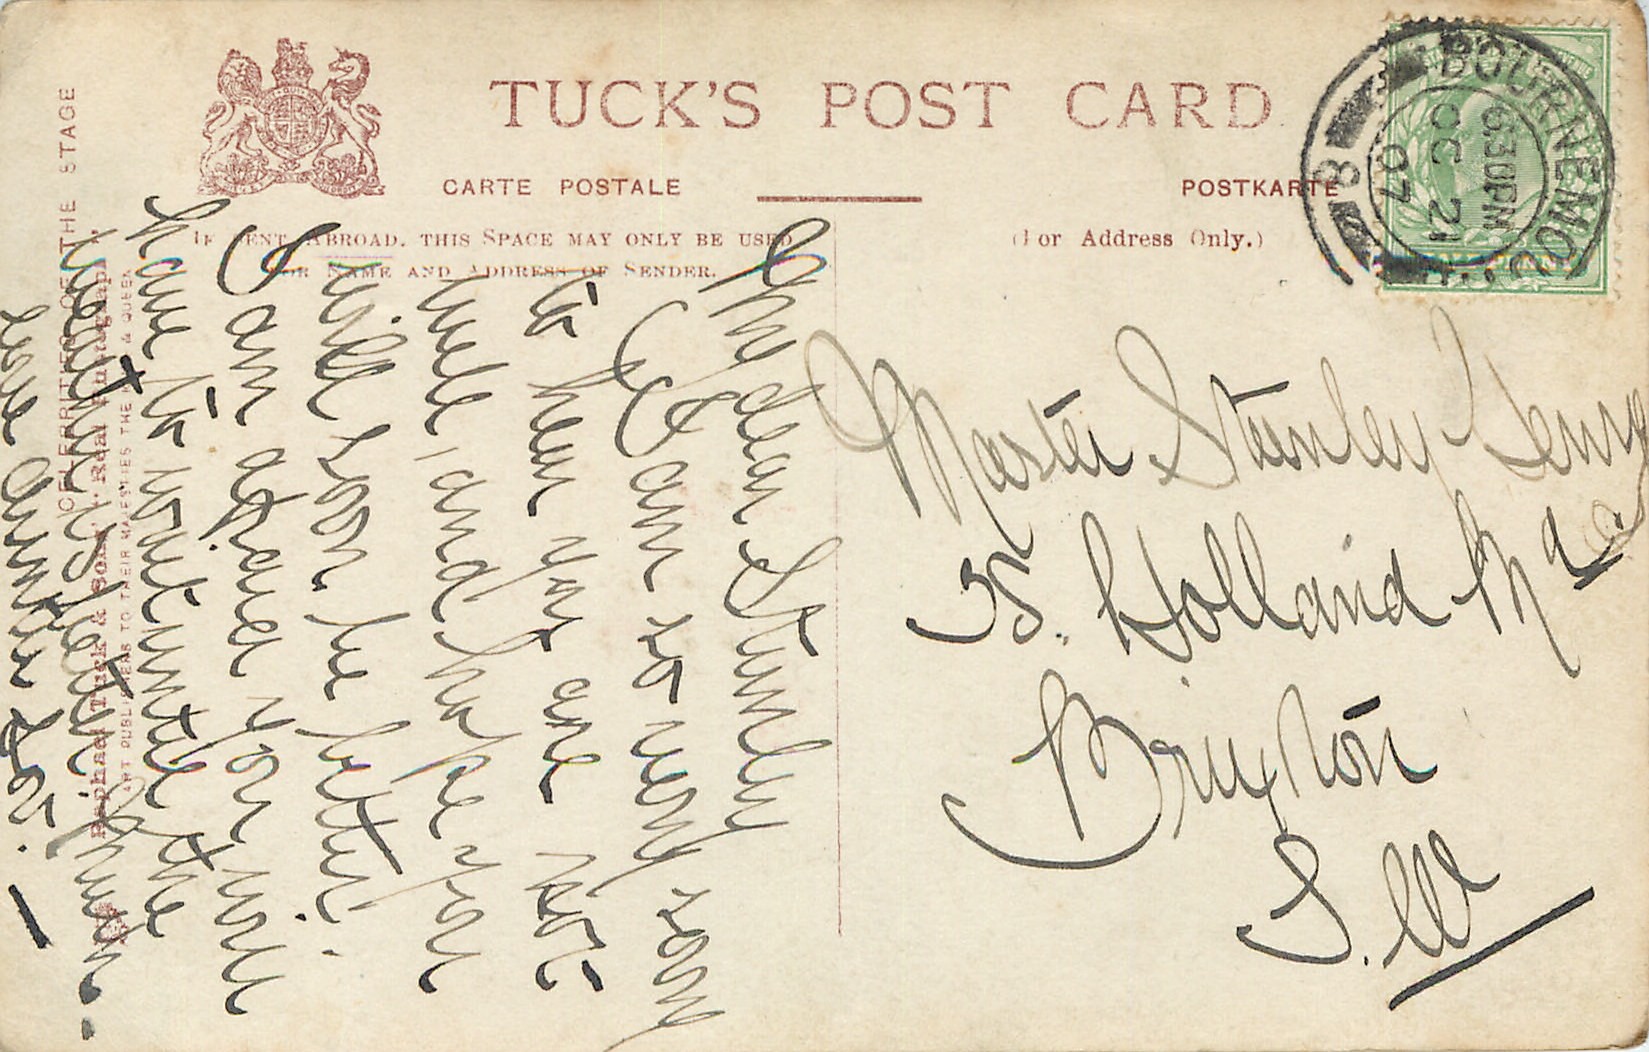 TUCK'S POST CARD
CARTE POSTALE
POSTKARTE
IF SENT ABROAD, THIS SPACE MAY ONLY BE USED
FOR NAME AND ADDRESS OF SENDER.
(For Address Only.)
BOURNEMOUTH
6.30PM
OC 21
07
8
HALFPENNY
CELEBRITIES OF THE STAGE
Raphael Tuck & Sons' "Real Photograph"
ART PUBLISHERS TO THEIR MAJESTIES THE KING & QUEEN
My dear Stanley
I am so very sorry
to hear you are not
well, and hope you
will soon be better.
I am afraid you will
have to wait until the
weather is better
love Auntie
Master Stanley
35. Holland Rd
Brixton
S.W